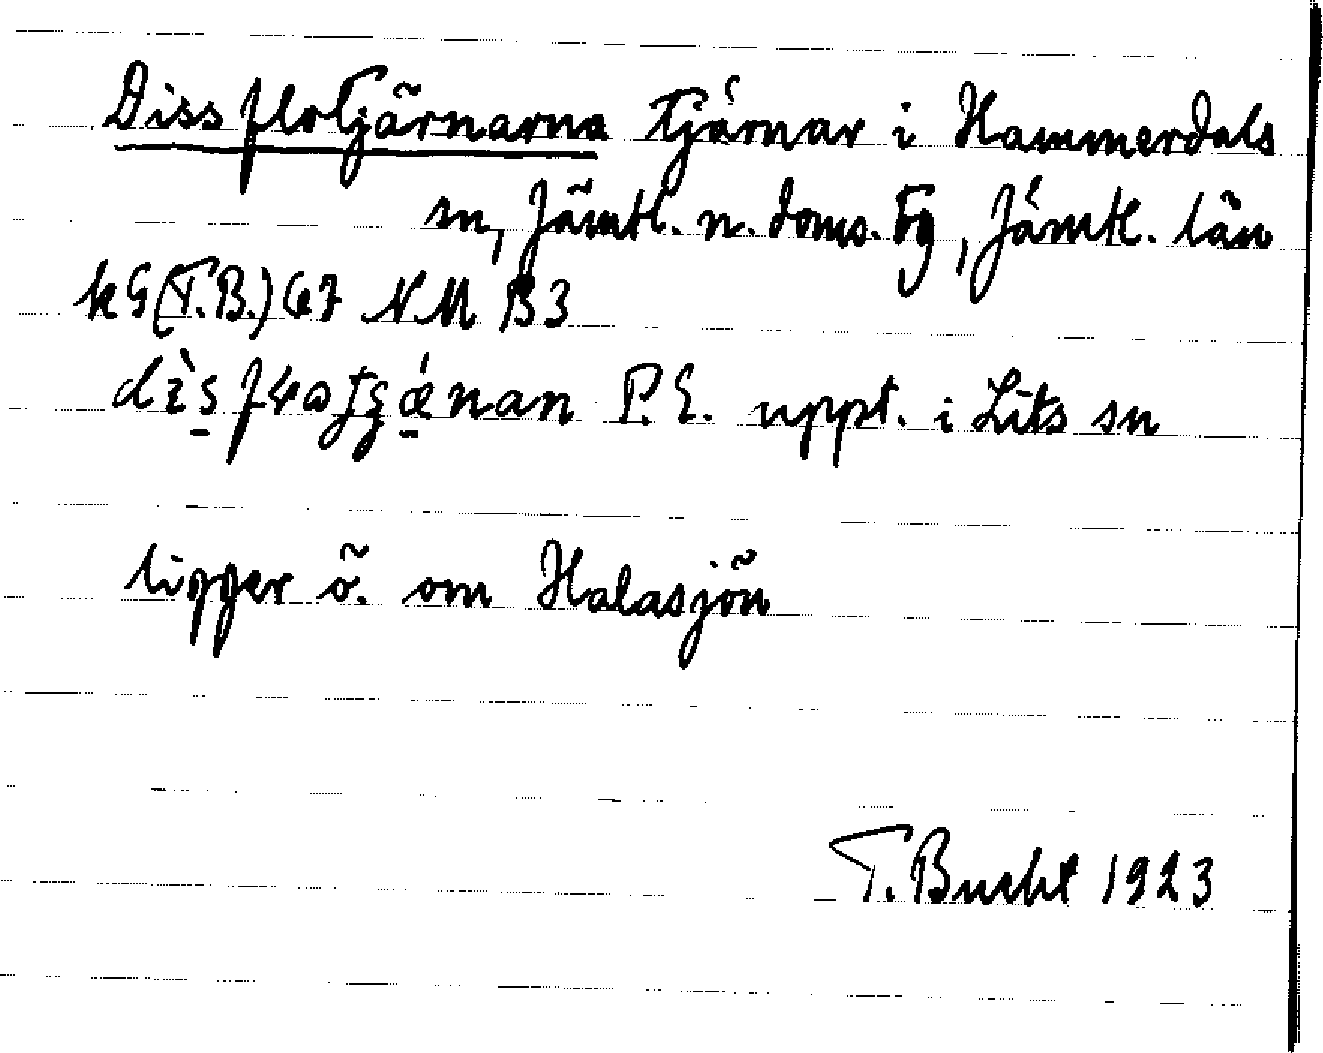 Dissflotjärnarna tjärnar i Hammerdals
sn, Jämtl. n. doms. tg, Jämtl. län
kG (T.B.) 67 NM B3
P.E. uppt. i Lits sn
ligger ö. om Halasjön
T. Bucht 1923